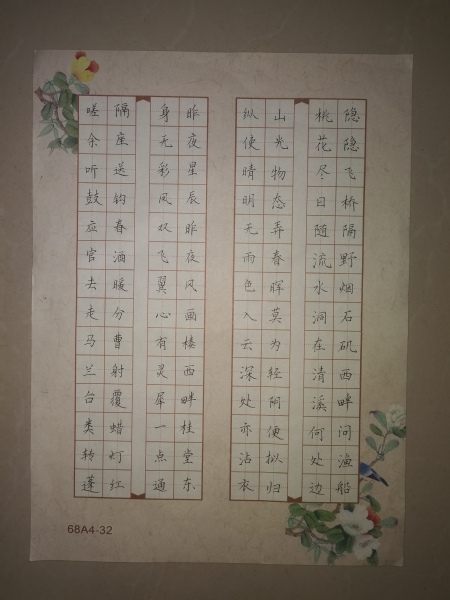 隐隐飞桥隔野烟石矶西畔问渔船
桃花尽日随流水洞在清溪何处边
山光物态弄春晖莫为轻阴便拟归
纵使晴明无雨色入云深处亦沾衣
昨夜星辰昨夜风画楼西畔桂堂东
身无彩凤双飞翼心有灵犀一点通
隔座送钩春酒暖分曹射覆蜡灯红
嗟余听鼓应官去走马兰台类转蓬
68A4-32